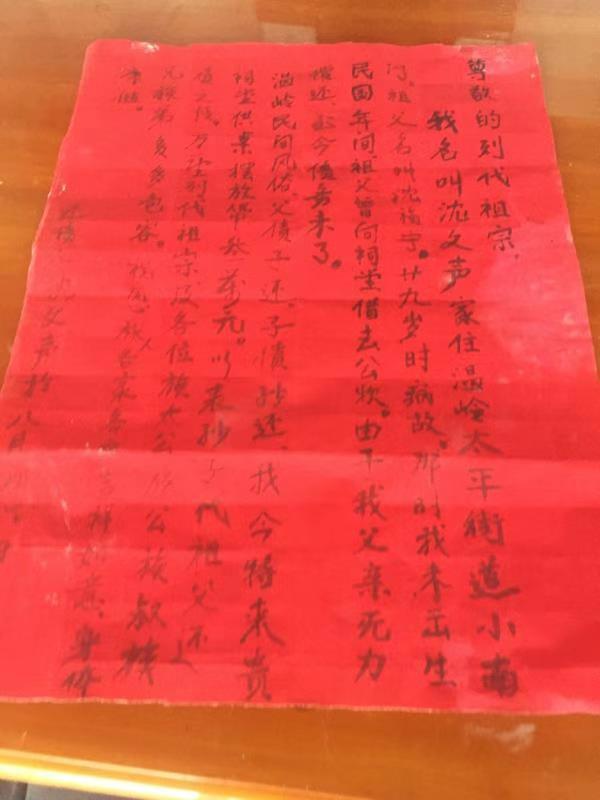 尊敬的列代祖宗，
我名叫沈文声家住温岭太平街道小南
门。祖父名叫沈福宁。廿九岁时病故。那时我未出生
民国年间祖父曾向祠堂借去公款。由于我父亲无力
偿还，至今债务未了。
温岭民间风俗，父债子还。子债孙还，我今特来贵
祠堂供案摆放算叁万元。以来孙子代祖父还上
债之钱。万望列代祖宗及各位族太公族公族叔族
兄族弟多多包容。祝愿族人各家各 吉祥如意、身体
康健。
沈文声 八月 日